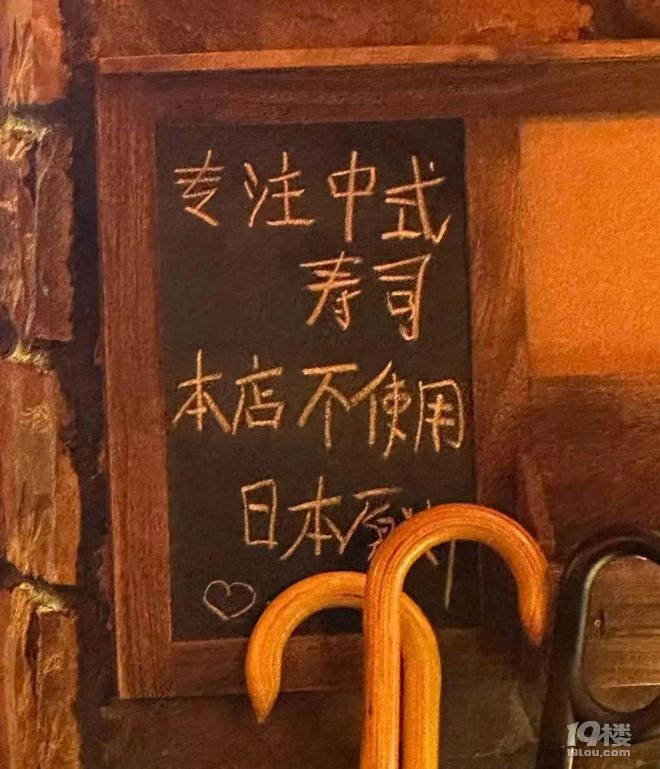 专注中式
寿司
本店不使用
日本原料
19楼
19lou.com